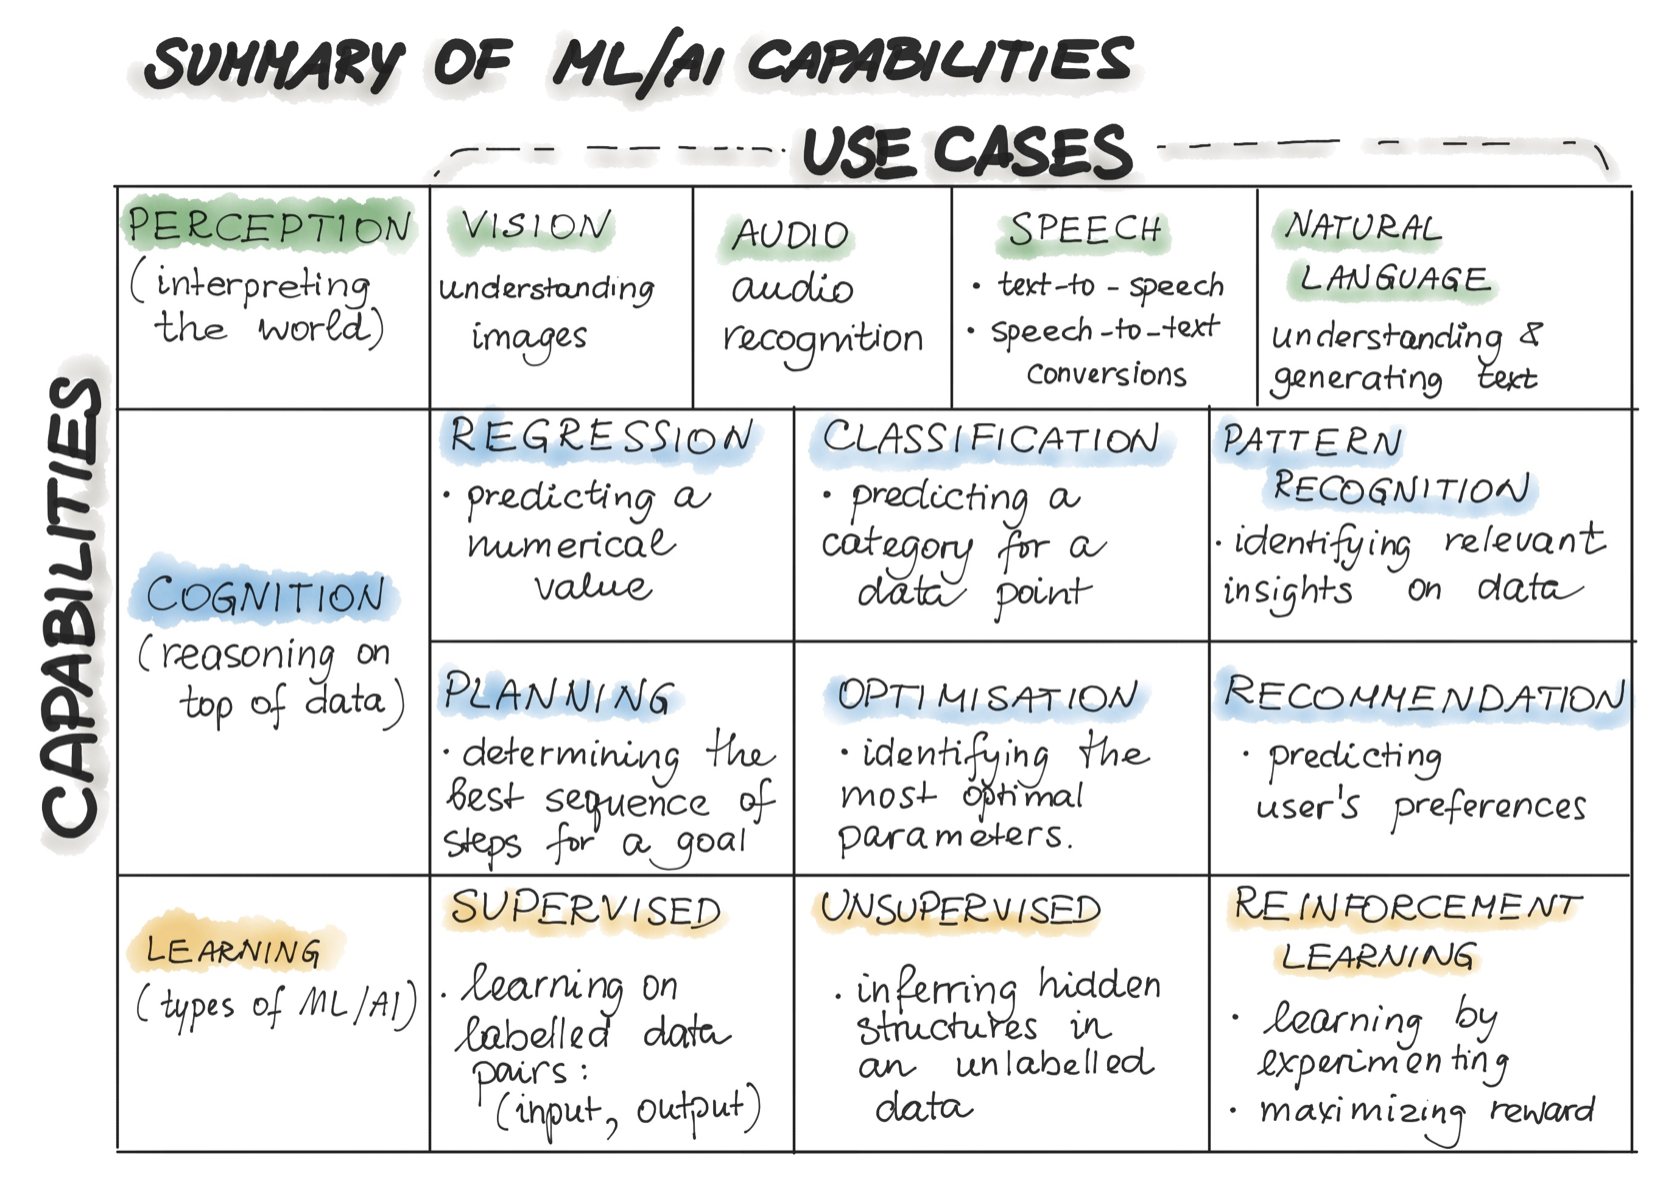 SUMMARY OF ML/AI CAPABILITIES
USE CASES
CAPABILITIES
PERCEPTION
(interpreting
the world)
VISION
understanding
images
AUDIO
audio
recognition
SPEECH
• text-to-speech
• speech-to-text
conversions
NATURAL
LANGUAGE
understanding &
generating text
COGNITION
(reasoning on
top of data)
REGRESSION
• predicting a
numerical
value
CLASSIFICATION
• predicting a
category for a
data point
PATTERN
RECOGNITION
• identifying relevant
insights on data
PLANNING
• determining the
best sequence of
steps for a goal
OPTIMISATION
• identifying the
most optimal
parameters.
RECOMMENDATION
• predicting
user's preferences
LEARNING
(types of ML/AI)
SUPERVISED
• learning on
labelled data
pairs:
(input, output)
UNSUPERVISED
• inferring hidden
structures in
an unlabelled
data
REINFORCEMENT
LEARNING
• learning by
experimenting
• maximizing reward